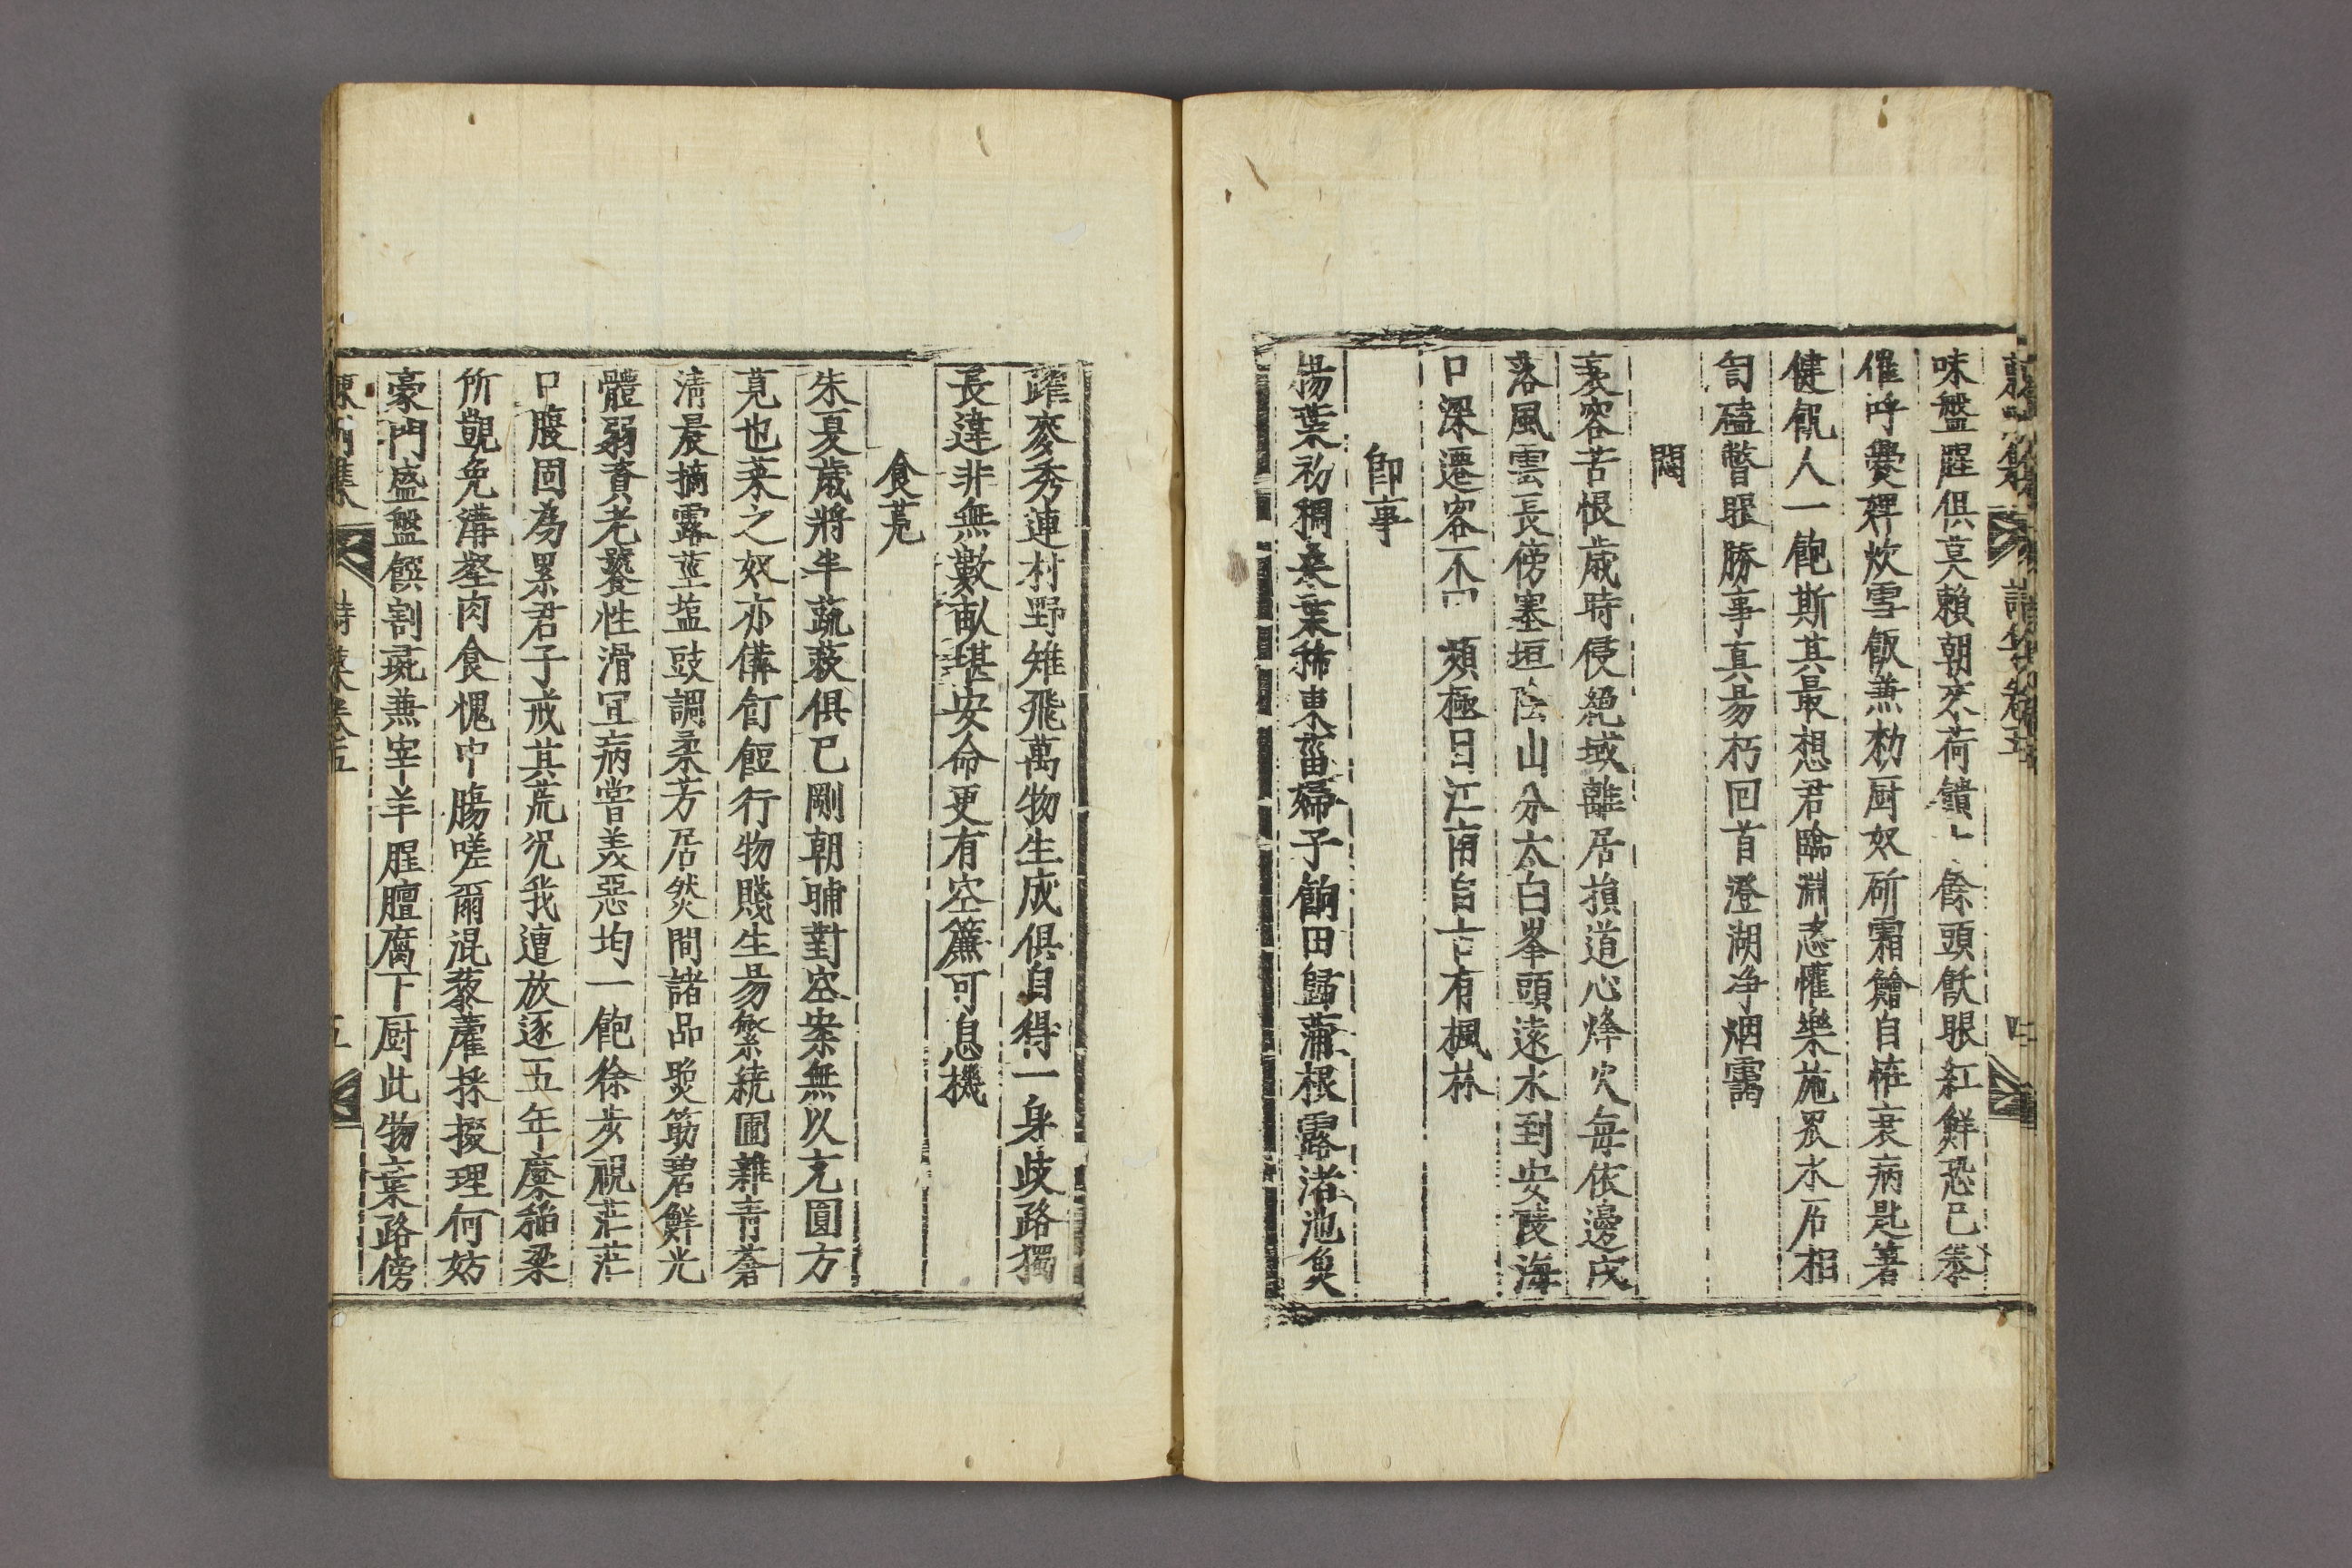 味盤腥俱莫賴朝來荷饋餘頭飫眼紅鮮恐已㤗
催呼爨婢炊雪飯兼勑厨奴斫霜鱠自恠衰病匙箸
健飢人一飽斯其最想君臨淵恣懽樂施罛水石相
訇磕瞥眼勝事真昜朽回首澄湖净烟靄
悶
衰容苦恨歲時侵絶域離居損道心烽火每依邊戍
落風雲長傍塞垣陰山分太白峯頭遠水到安陵海
口深遷客不四頻極目江南自古有楓林
即事
楊葉初稠桑葉稀東菑婦子餉田歸蒲根露渚池魚
躍麥秀連村野雉飛萬物生成俱自得一身歧路獨
長違非無數畝堪安命更有空簾可息機
食莧
朱夏歲將半蔬菽俱已剛朝晡對空案無以充圓方
莧也菜之奴亦備飣餖行物賤生昜繁繞圃雜青蒼
淸晨摘露莖塩豉調柔芳居然間諸品熨筯碧鮮光
體弱資老饕性滑冝病嘗美惡均一飽徐步視茫茫
口腹固爲累君子戒其荒況我遭放逐五年糜稻粱
所覬免溝壑肉食愧中腸嗟爾混藜藿採掇理何妨
豪門盛盤饌割彘兼宰羊腥膻腐下厨此物棄路傍